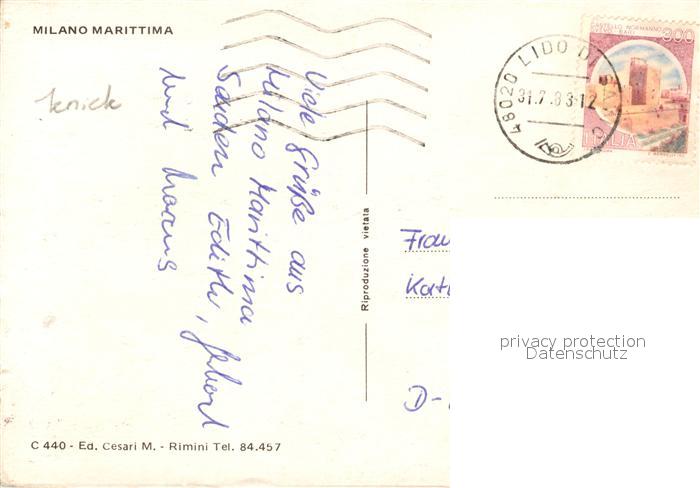 MILANO MARITTIMA
Viele Grüße aus
Milano Marittima
Senden Edith, Gebhard
und Marcus
Riproduzione vietata
C 440 - Ed. Cesari M. - Rimini Tel. 84.457
CASTELLO NORMANNO
300
ITALIA
48020 LIDO D
31.7.83-12
Frau
D-
privacy protection
Datenschutz